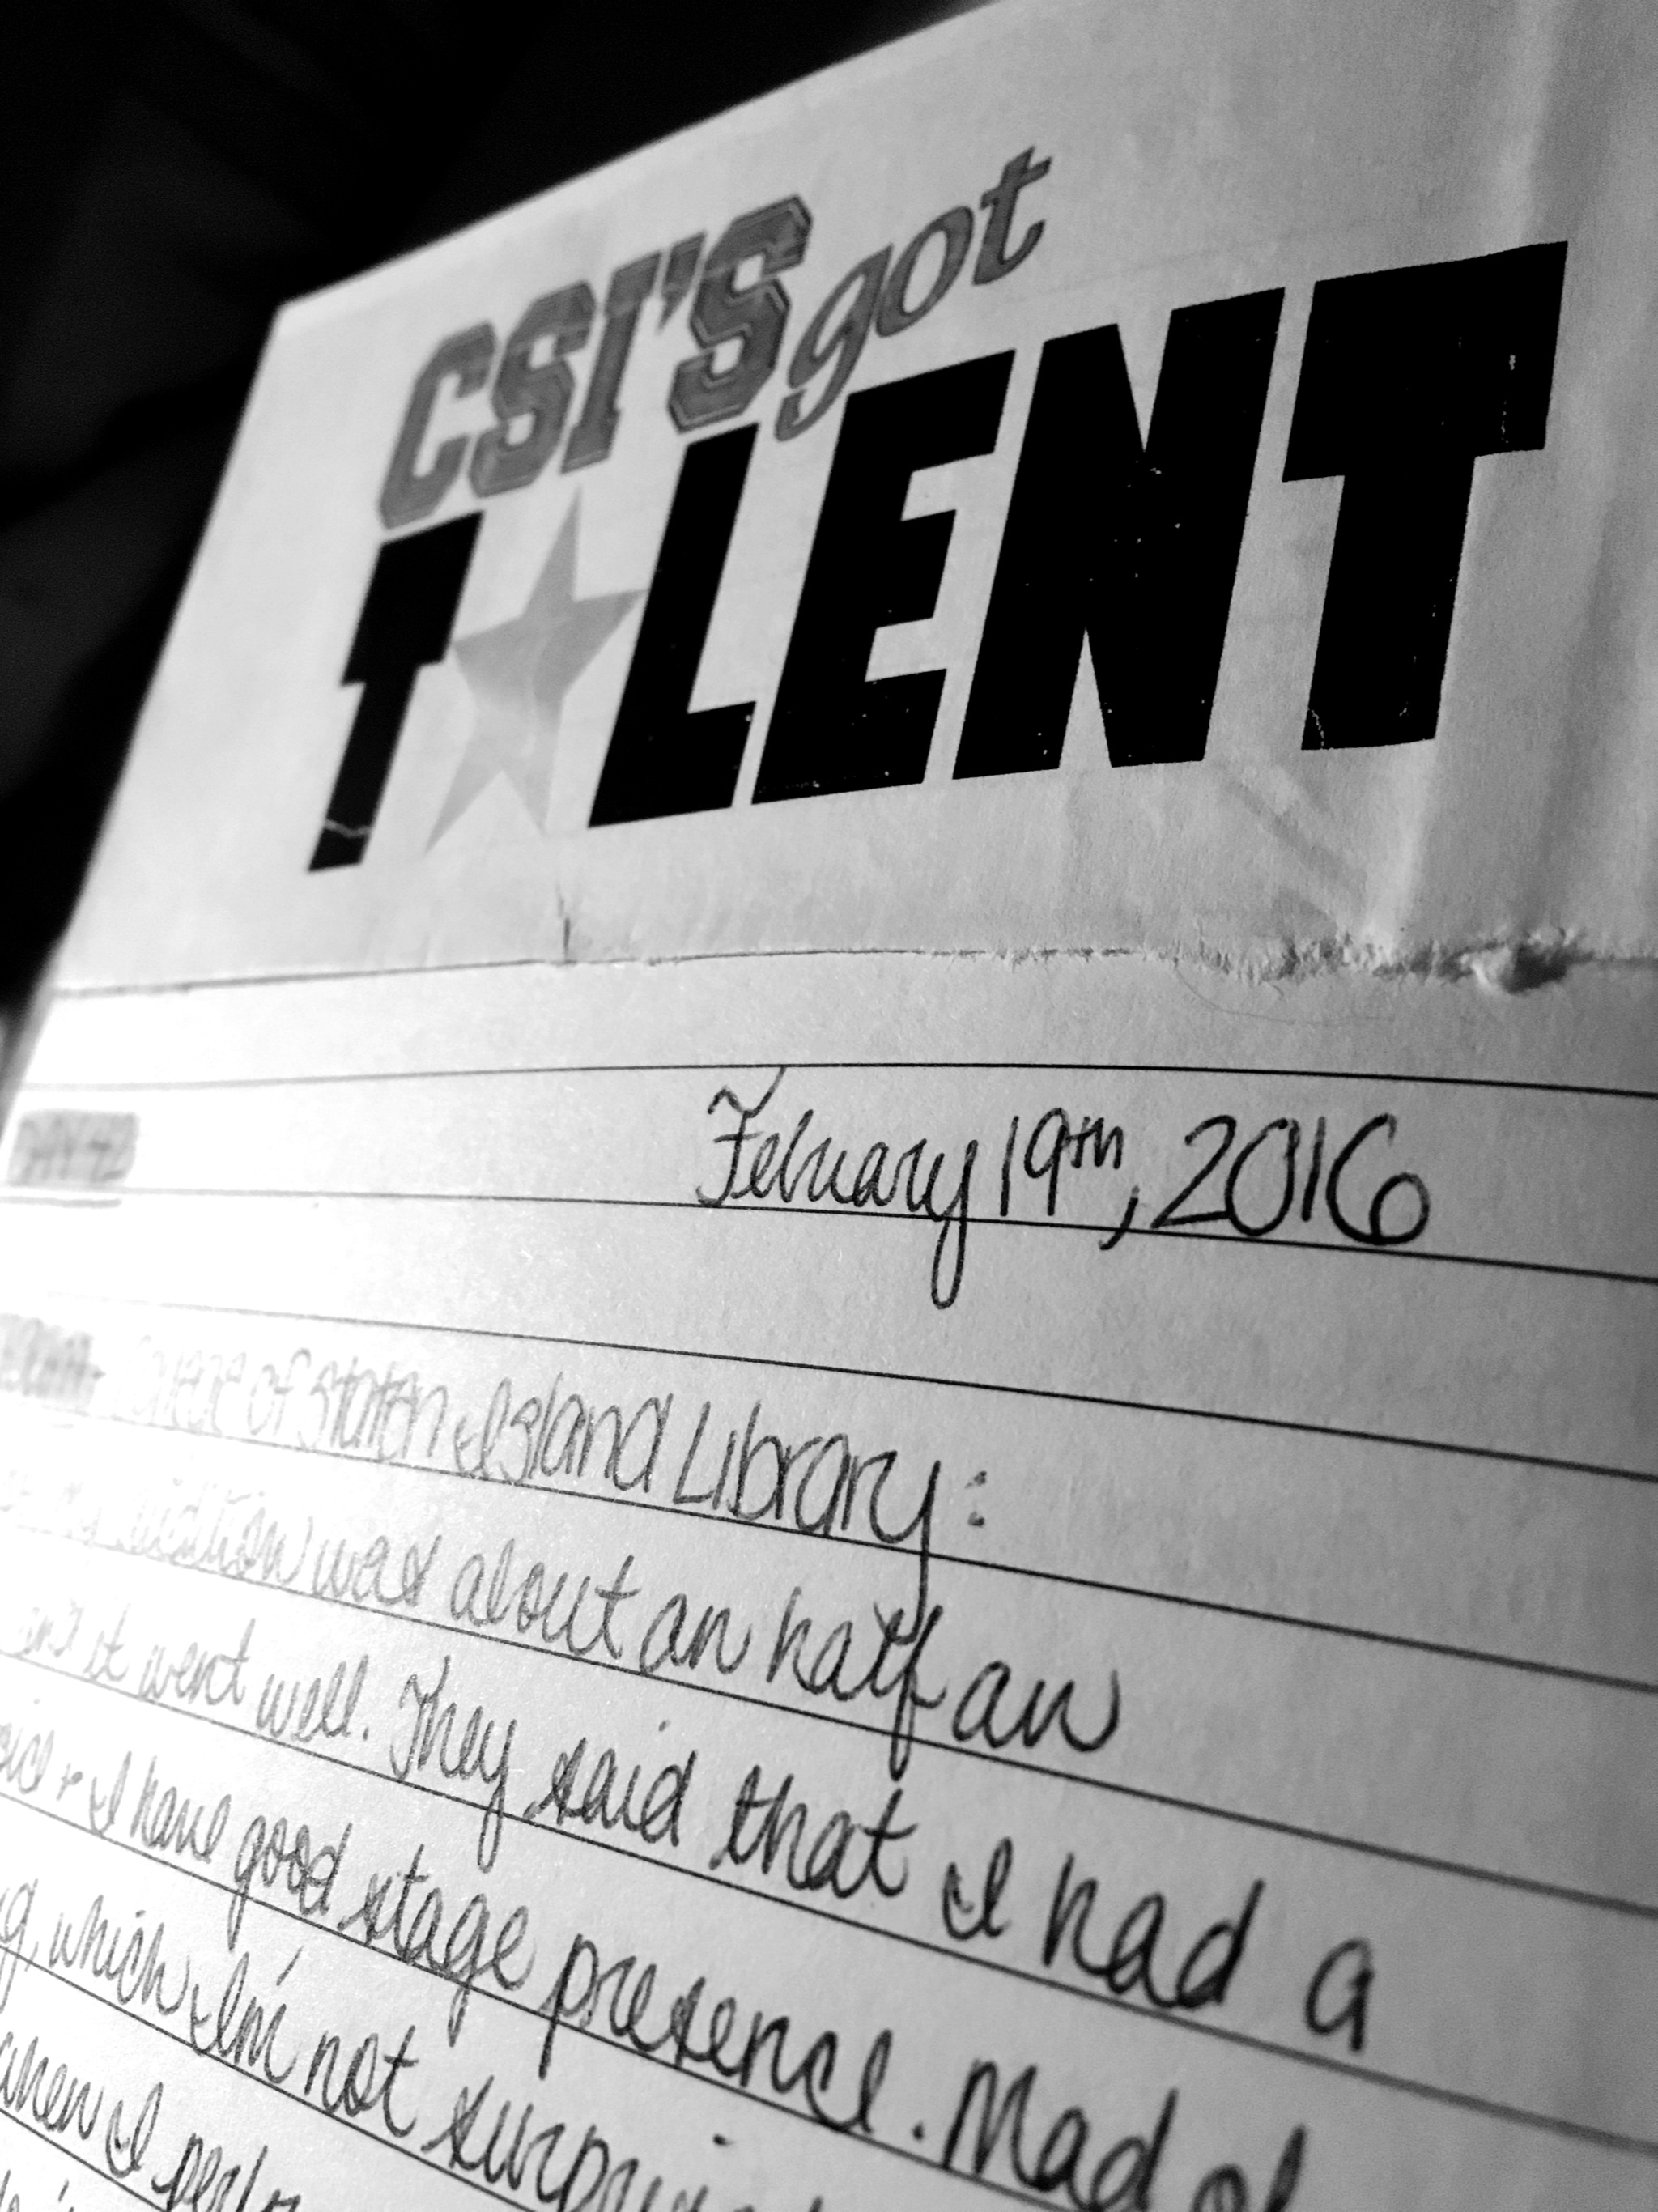 CSI'S got
T★LENT
February 19th, 2016
DAY 42
College of Staten Island Library:
audition was about an half an
it went well. They said that I had a
+ I have good stage presence. Mad
which I'm not
when I